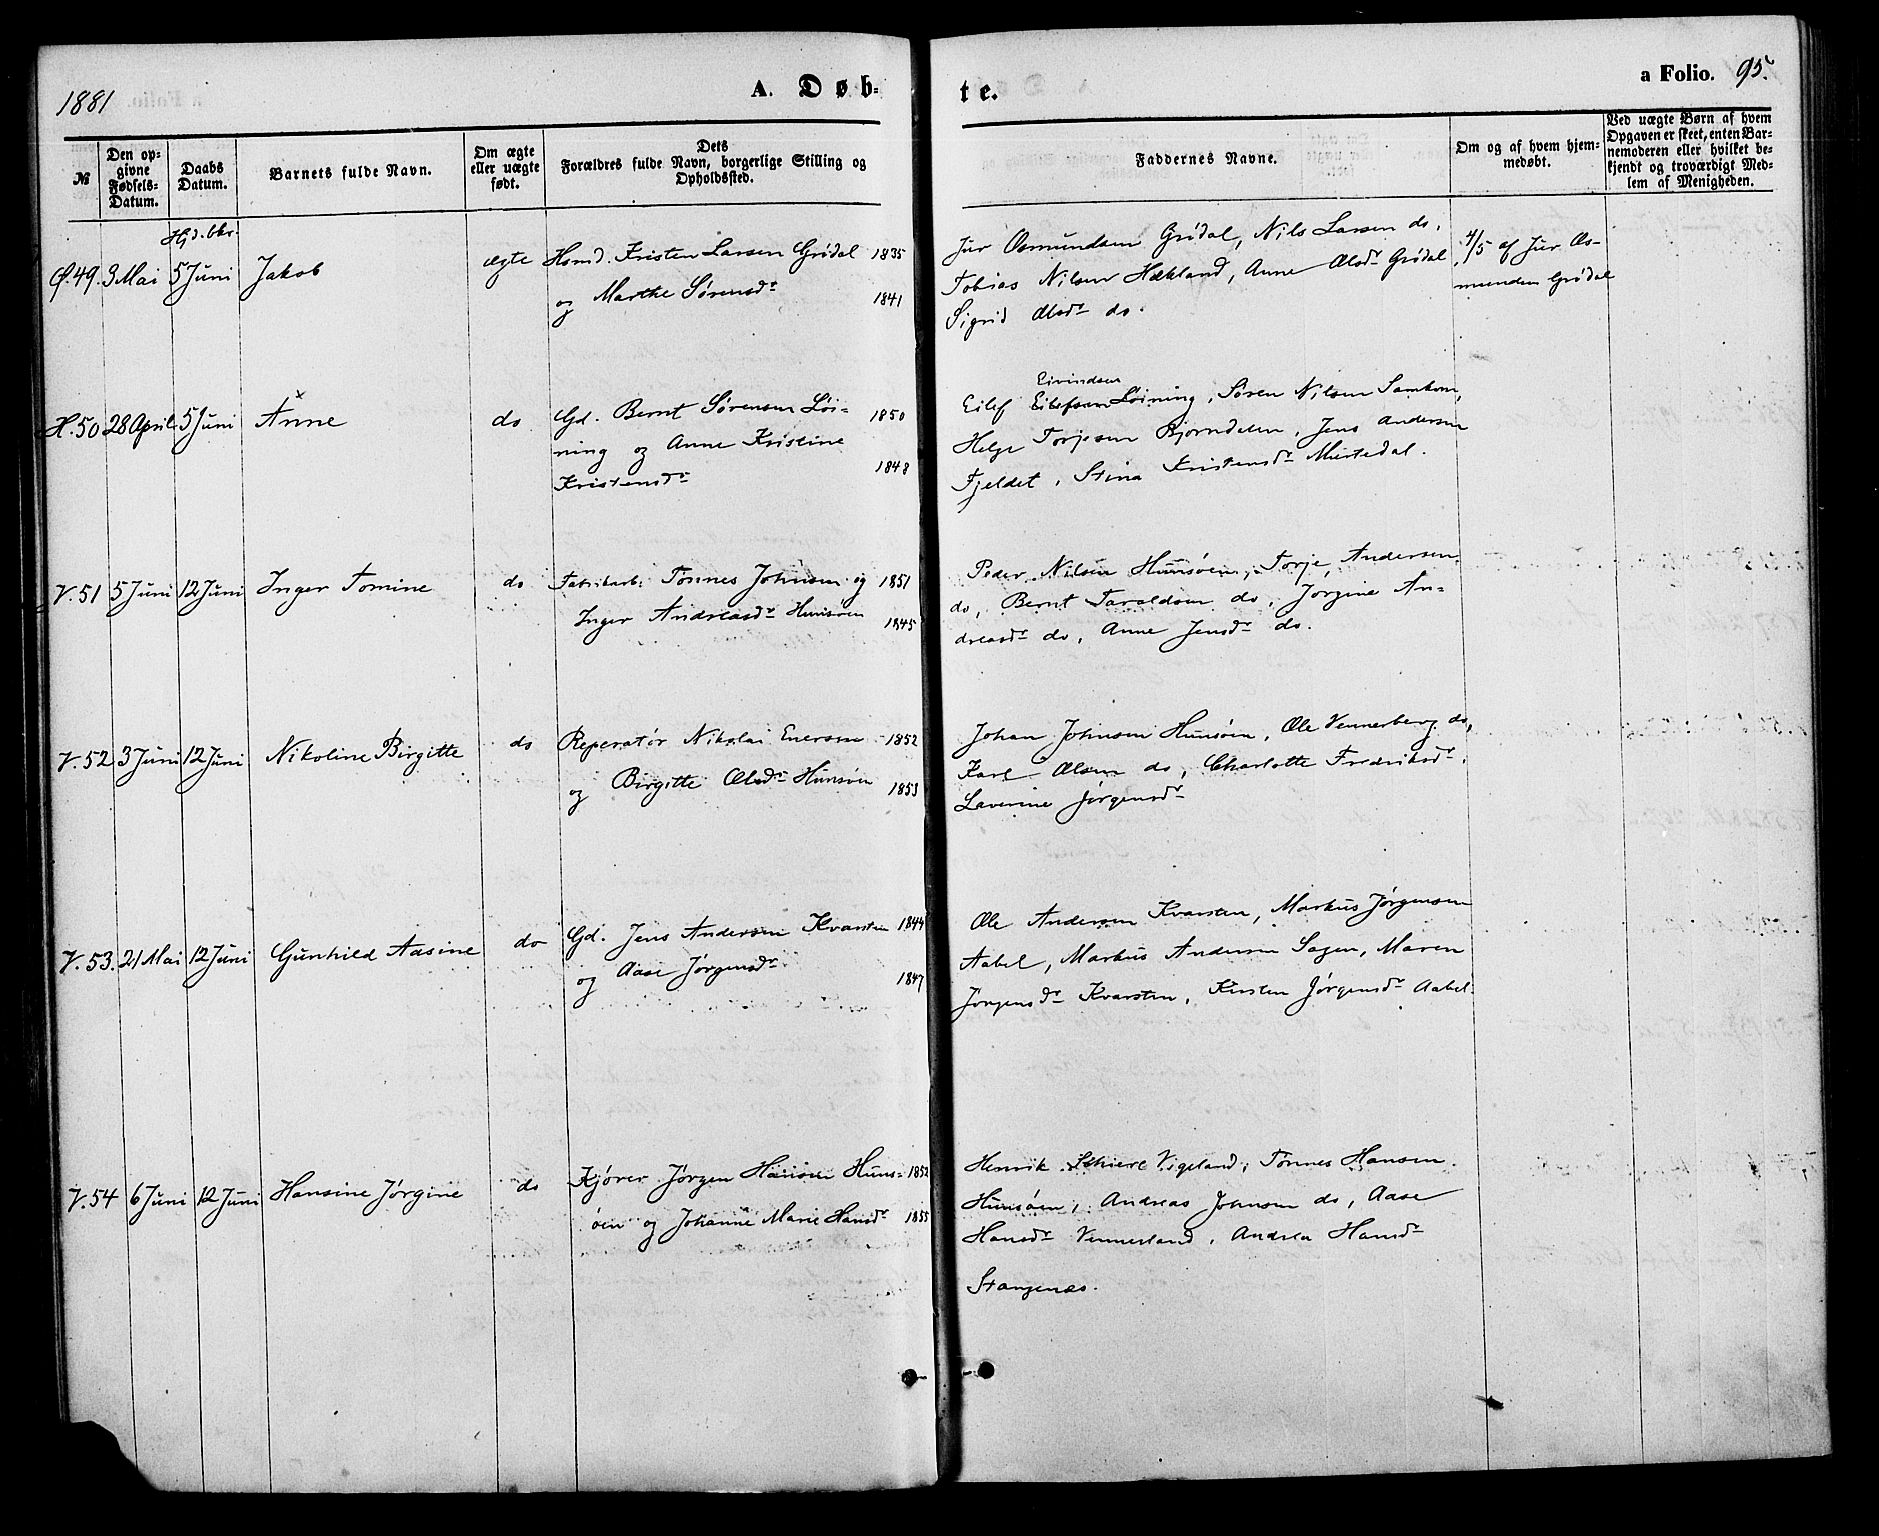 1881
A. Døb-
te.
a Folio. 95.
№
Den op-
givne
Fødsels-
Datum.
Daabs
Datum.
Barnets fulde Navn.
Om ægte
eller uægte
født.
Dets
Forældres fulde Navn, borgerlige Stilling og
Opholdssted.
Faddernes Navne.
Om og af hvem hjem-
medøbt.
Ved uægte Børn af hvem
Opgaven er skeet, enten Bar-
nemoderen eller hvilket be-
kjendt og troværdigt Med-
lem af Menigheden.
Hjd. bkr.
Ø.49. 3 Mai 5 Juni Jakob ægte Hsmd. Kristen Larsen Grødal 1835
og Marthe Sørensdr 1841
Jur Osmundsen Grødal, Nils Larsen do,
Tobias Nilsen Hækland, Anne Olsdr Grødal
Sigrid Olsdr do.
4/5 af Jur Os-
mundsen Grødal
H.50 28 April 5 Juni Anne do Gd. Bernt Sørensen Løi- 1850
ning og Anne Kristine
Kristensdr 1848
Eivindsen
Eilef Eilefsen Løining, Søren Nilsen Samkom,
Helge Torjesen Bjorndalen, Jens Andersen
Fjeldet, Stina Kristensdr Murtedal.
V.51 5 Juni 12 Juni Inger Tomine do Fabrikarb. Tønnes Johnsen og 1851
Inger Andreasdr Hunsøen 1845
Peder Nilsen Hunsøen, Torje Andersen
do, Bernt Taraldsen do, Jorgine An-
dreasdr do, Anne Jensdr do.
V.52 3 Juni 12 Juni Nikoline Birgitte do Reperatør Nikolai Enersen 1852
og Birgitte Olsdr Hunsøen 1853
Johan Johnsen Hunsøen, Ole Vennerberg do,
Karl Olsen do, Charlotte Fredriksdr,
Laverine Jørgensdr
V.53. 21 Mai 12 Juni Gunhild Aasine do Gd. Jens Andersen Kvarsten 1844
og Aase Jørgensdr 1847
Ole Andersen Kvarsten, Markus Jørgensen
Aabel, Markus Andersen Sagen, Maren
Jørgensdr Kvarsten, Kirsten Jørgensdr Aabel.
V.54 6 Juni 12 Juni Hansine Jørgine do Kjører Jørgen Hansen Huns- 1852
øen og Johanne Marie Hansdr 1855
Henrik Vigeland, Tønnes Hansen
Hunsøen, Andreas Johnsen do, Aase
Hansdr Vennesland, Andrea Hansdr
Stangenæs.